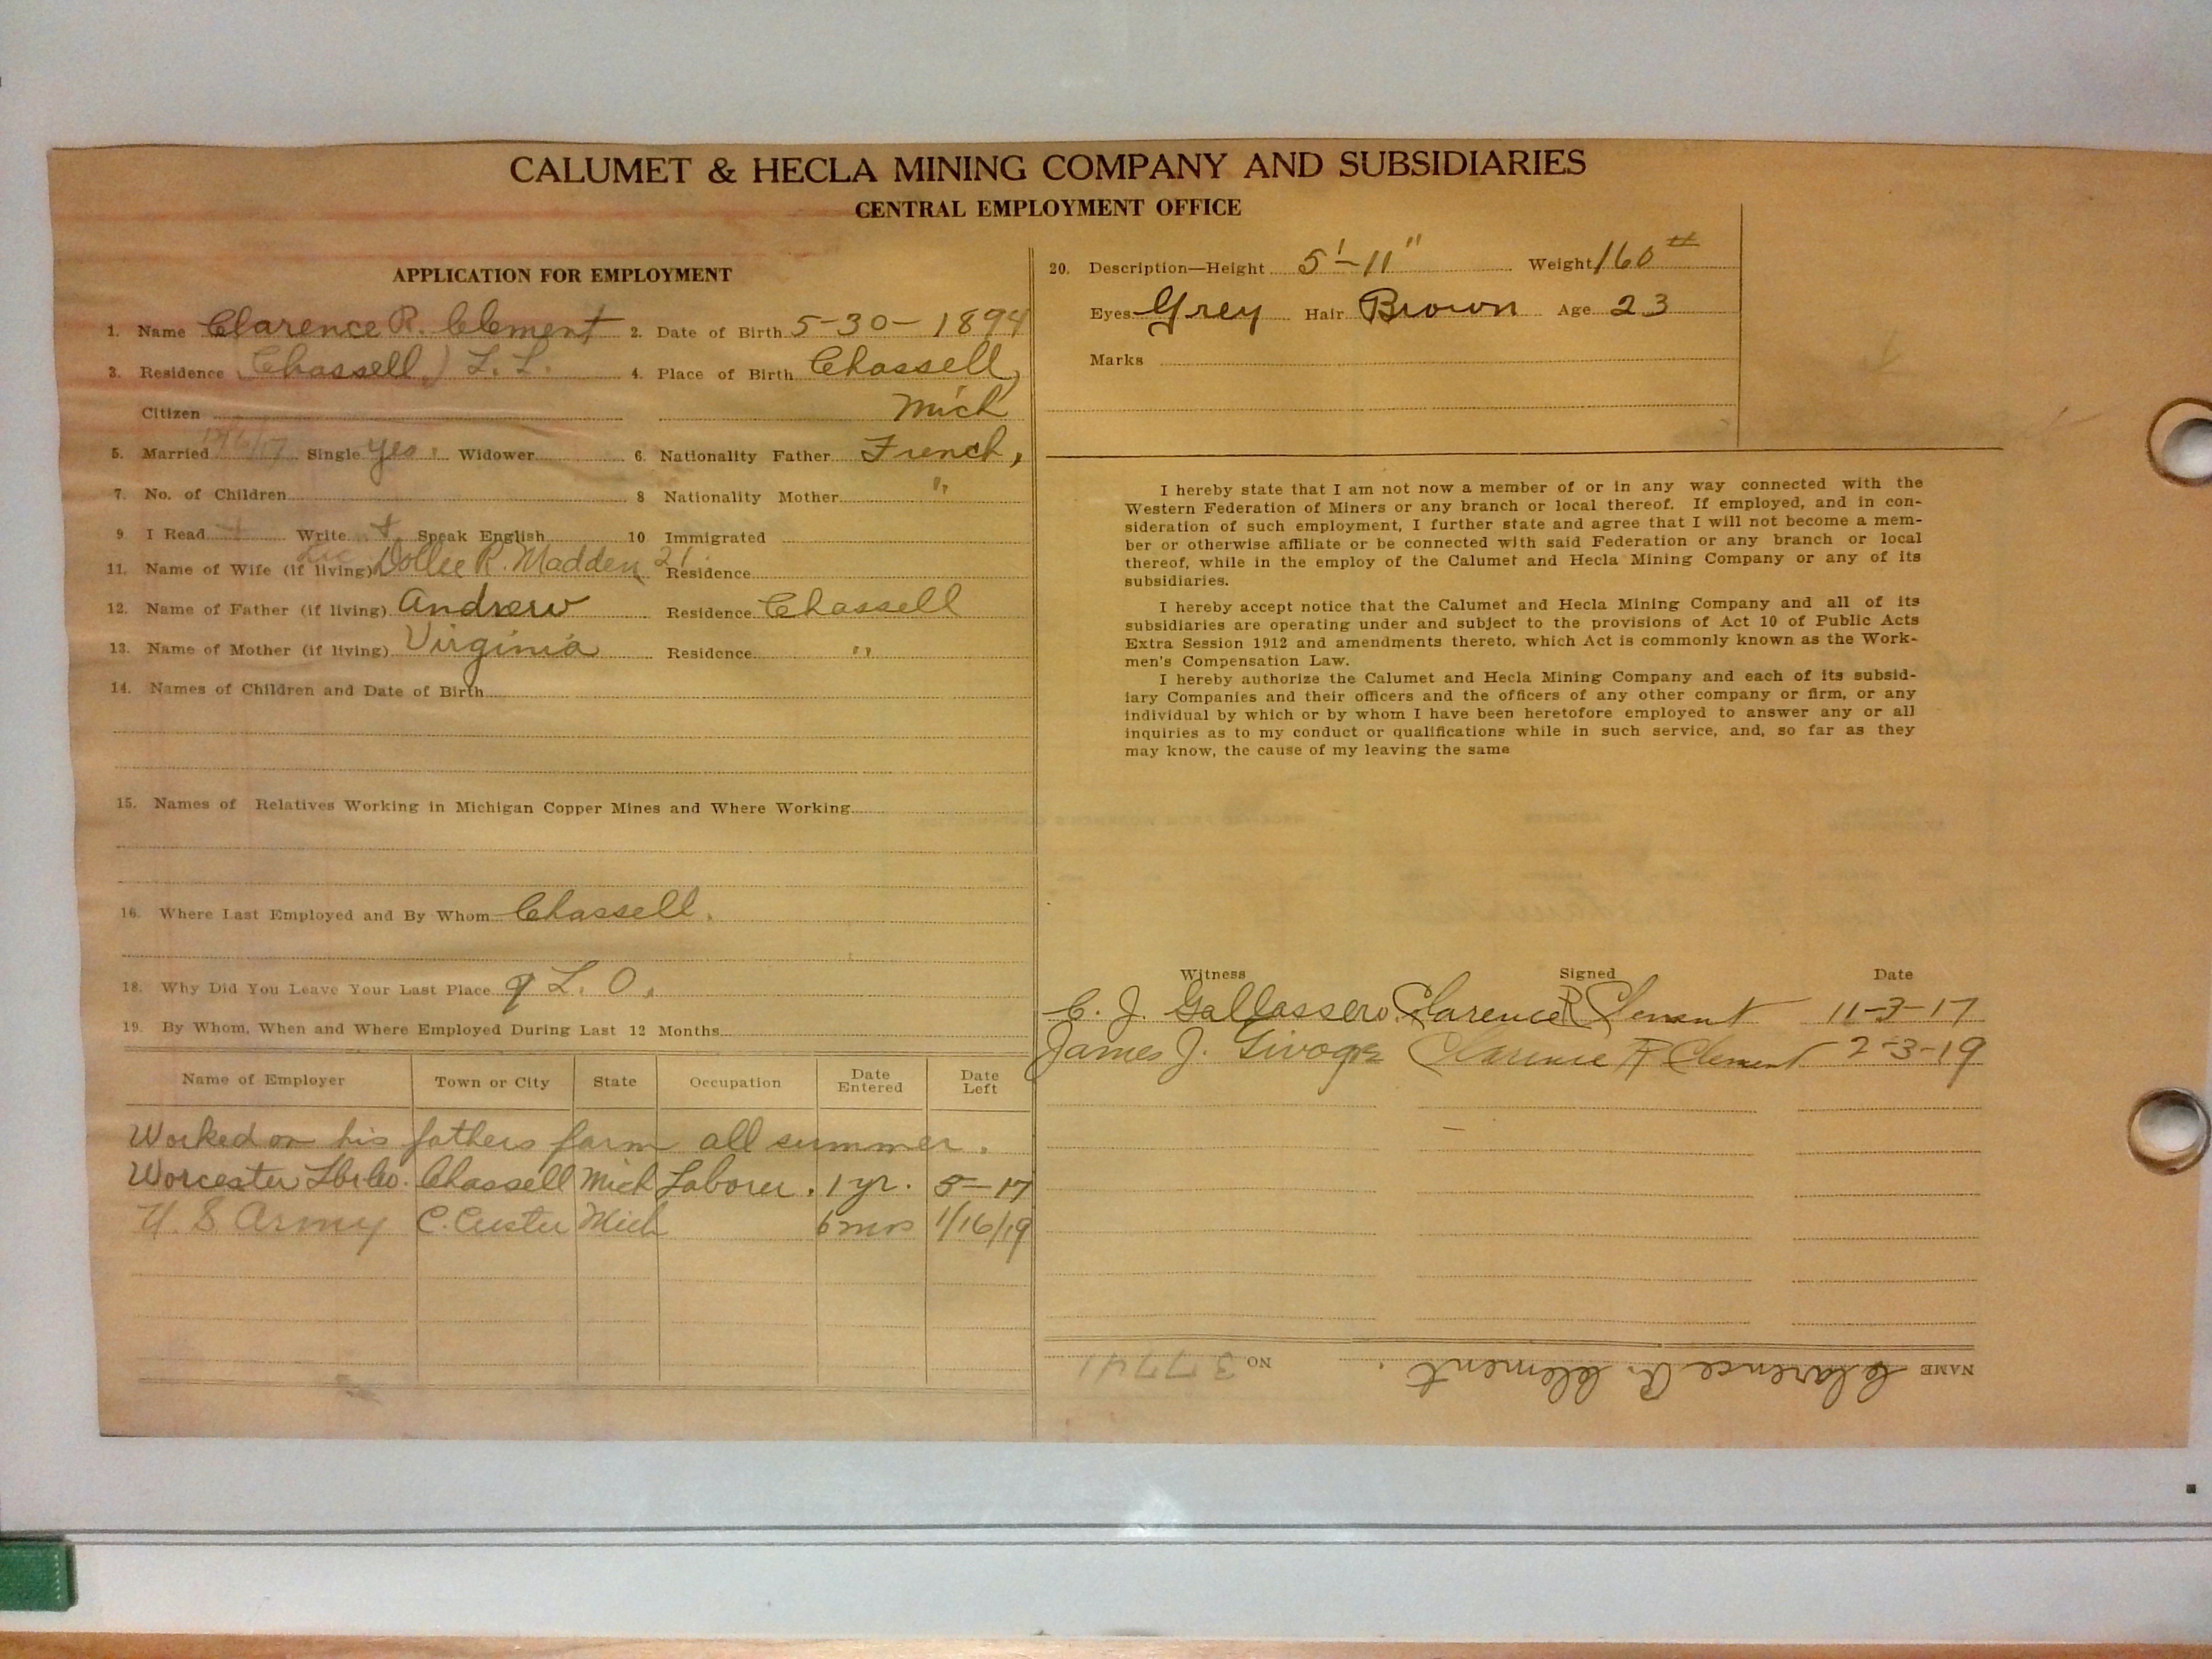 CALUMET & HECLA MINING COMPANY AND SUBSIDIARIES
CENTRAL EMPLOYMENT OFFICE
APPLICATION FOR EMPLOYMENT
1. Name Clarence R. Clement 2. Date of Birth 5-30-1894
3. Residence (Chassell) L. L. 4. Place of Birth Chassell,
Citizen Mich
5. Married Single yes. Widower 6. Nationality Father French,
7. No. of Children 8 Nationality Mother "
9. I Read + Write + Speak English 10 Immigrated
11. Name of Wife (if living) Dollee R. Madden 21. Residence
12. Name of Father (if living) Andrew Residence Chassell
13. Name of Mother (if living) Virginia Residence "
14. Names of Children and Date of Birth
15. Names of Relatives Working in Michigan Copper Mines and Where Working
16. Where Last Employed and By Whom Chassell.
18. Why Did You Leave Your Last Place L. O.
19. By Whom, When and Where Employed During Last 12 Months
Name of Employer Town or City State Occupation Date Entered Date Left
Worked on his fathers farm all summer.
Worcester Lbr Co. Chassell Mich Laborer. 1 yr. 5-17
U. S. Army C. Custer Mich 6 mos 1/16/19
20. Description—Height 5'-11" Weight 160#
Eyes Grey Hair Brown Age 23
Marks
I hereby state that I am not now a member of or in any way connected with the
Western Federation of Miners or any branch or local thereof. If employed, and in con-
sideration of such employment, I further state and agree that I will not become a mem-
ber or otherwise affiliate or be connected with said Federation or any branch or local
thereof, while in the employ of the Calumet and Hecla Mining Company or any of its
subsidiaries.
I hereby accept notice that the Calumet and Hecla Mining Company and all of its
subsidiaries are operating under and subject to the provisions of Act 10 of Public Acts
Extra Session 1912 and amendments thereto, which Act is commonly known as the Work-
men's Compensation Law.
I hereby authorize the Calumet and Hecla Mining Company and each of its subsid-
iary Companies and their officers and the officers of any other company or firm, or any
individual by which or by whom I have been heretofore employed to answer any or all
inquiries as to my conduct or qualifications while in such service, and, so far as they
may know, the cause of my leaving the same
Witness Signed Date
C. J. Gallassero. Clarence R Clement 11-3-17
James J. Clarence R Clement 2-3-19
NAME Clarence R. Clement. NO 37741